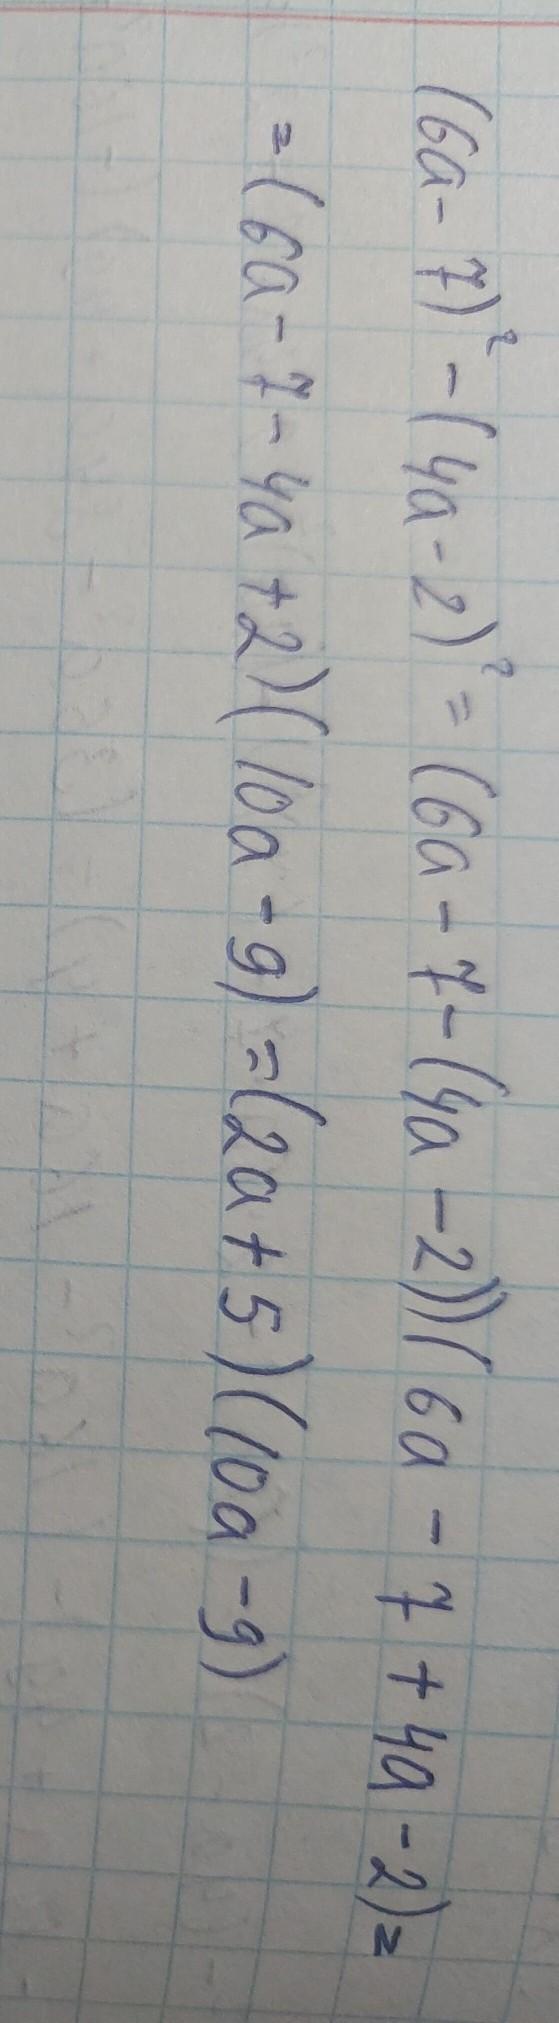 (6a - 7)² - (4a - 2)² = (6a - 7 - (4a - 2))(6a - 7 + 4a - 2) =
= (6a - 7 - 4a + 2)(10a - 9) = (2a + 5)(10a - 9)